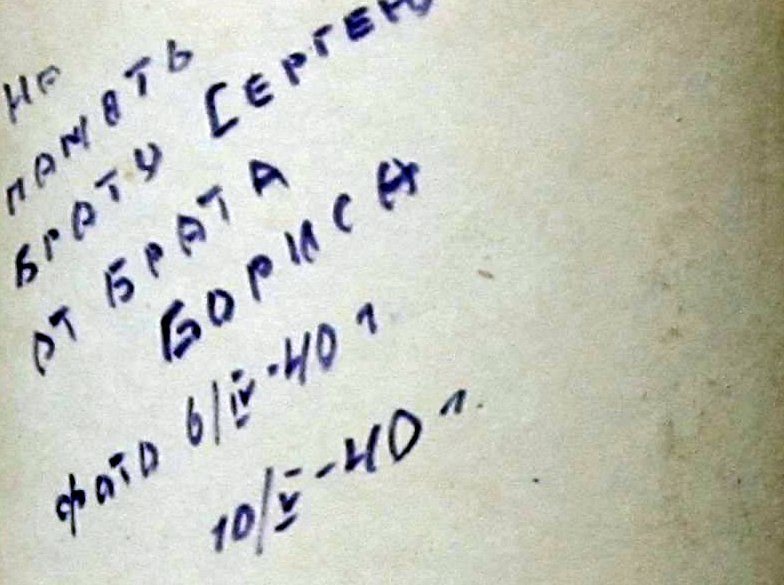 НА
ПАМЯТЬ
БРАТУ СЕРГЕЮ
ОТ БРАТА
БОРИСА
фото 6/IV-40 г.
10/V-40 г.